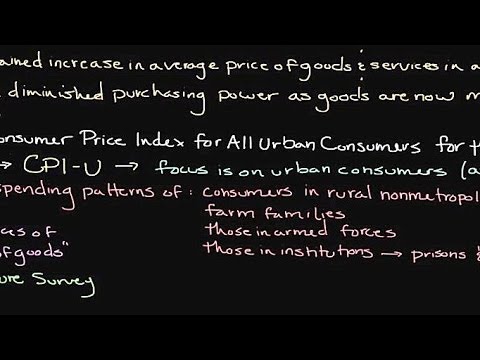 ained increase in average price of goods & services in a
diminished purchasing power as goods are now m
onsumer Price Index for All Urban Consumers for t
→ CPI-U → focus is on urban consumers (a
spending patterns of: consumers in rural nonmetropol
farm families
ces of those in armed forces
of goods" those in institutions → prisons &
ure Survey